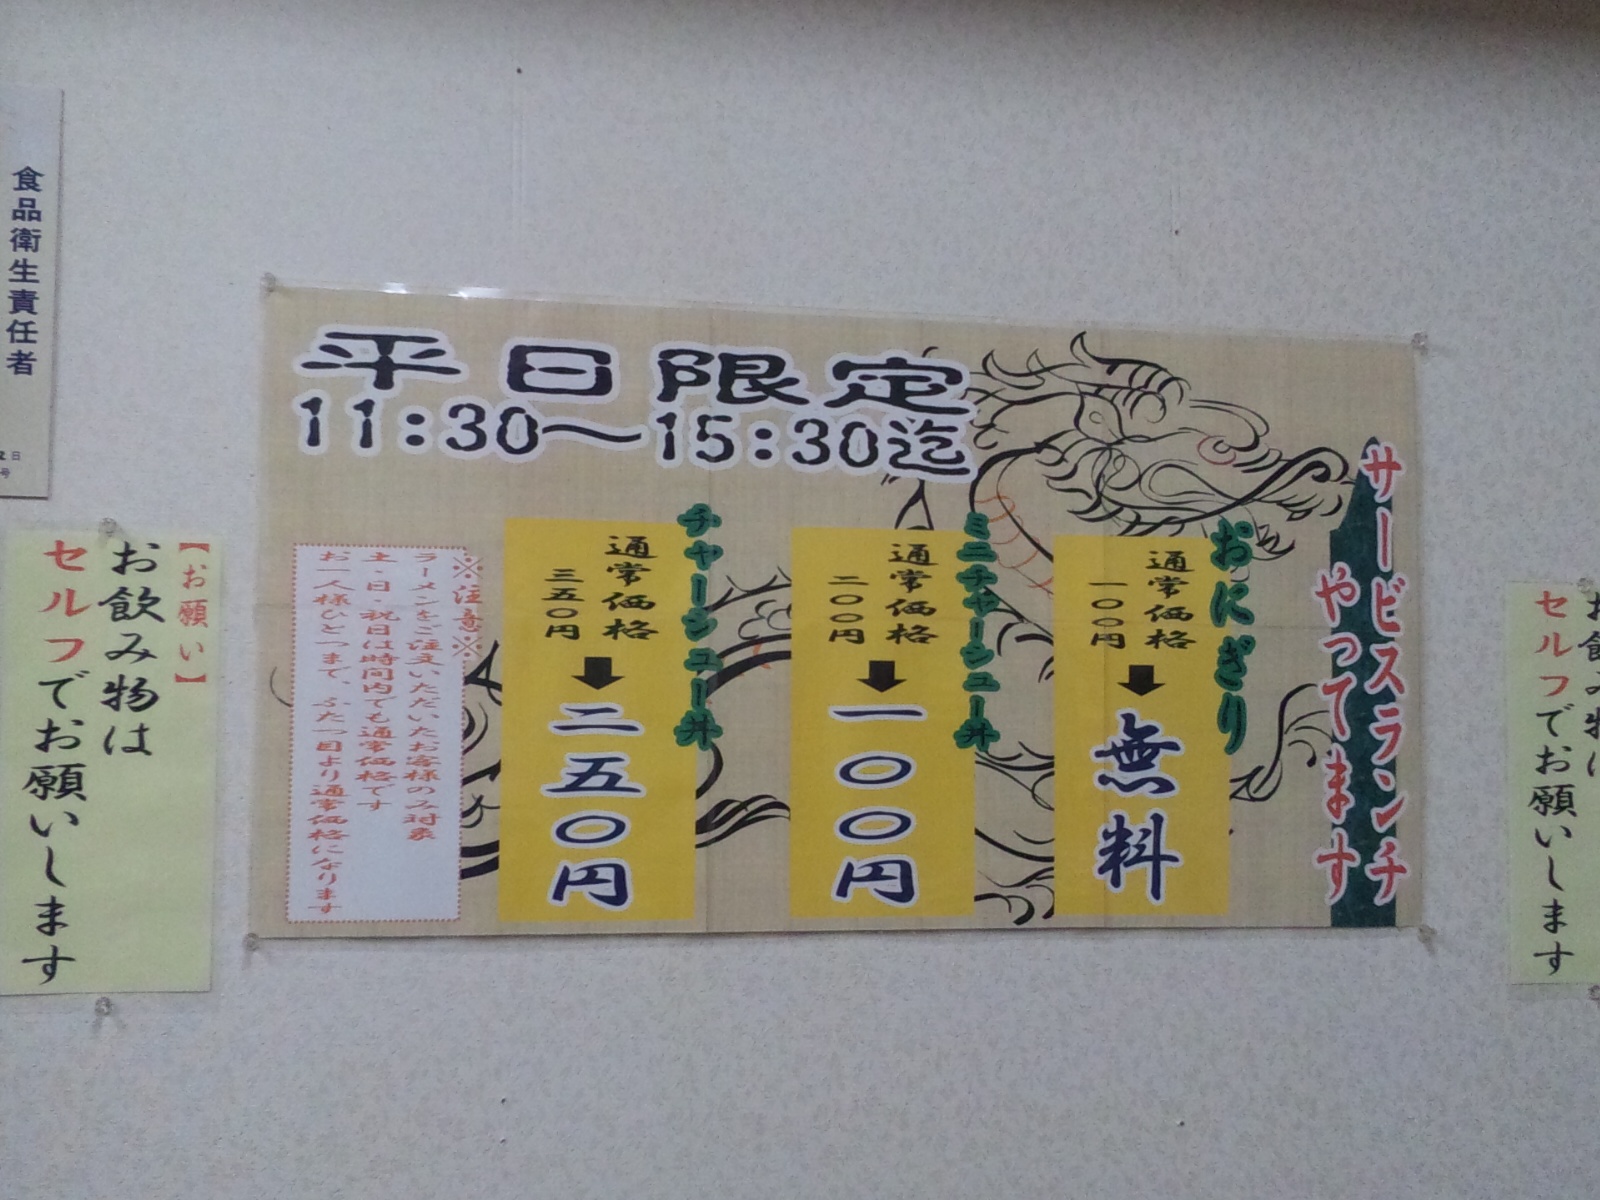 平日限定
11:30〜15:30迄
サービスランチ
やってます
おにぎり
通常価格
一００円
無料
ミニチャーシュー丼
通常価格
二００円
一００円
チャーシュー丼
通常価格
三五０円
二五０円
※注意※
ラーメンをご注文いただいたお客様のみ対象
土・日 祝日は時間内でも通常価格です
お一人様ひとつまで、ふたつ目より通常価格になります
食品衛生責任者
日
号
【お願い】
お飲み物は
セルフでお願いします
お飲み物は
セルフでお願いします